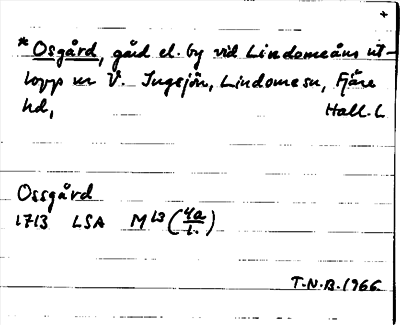 +
*Osgård, gård el. by vid Lindomeåns ut-
lopp ur V. Ingsjön, Lindomesn, Fjäre
hd, Hall. L
Ossgård
1713 LSA M 13 (4a/1.)
T.N.B. 1966